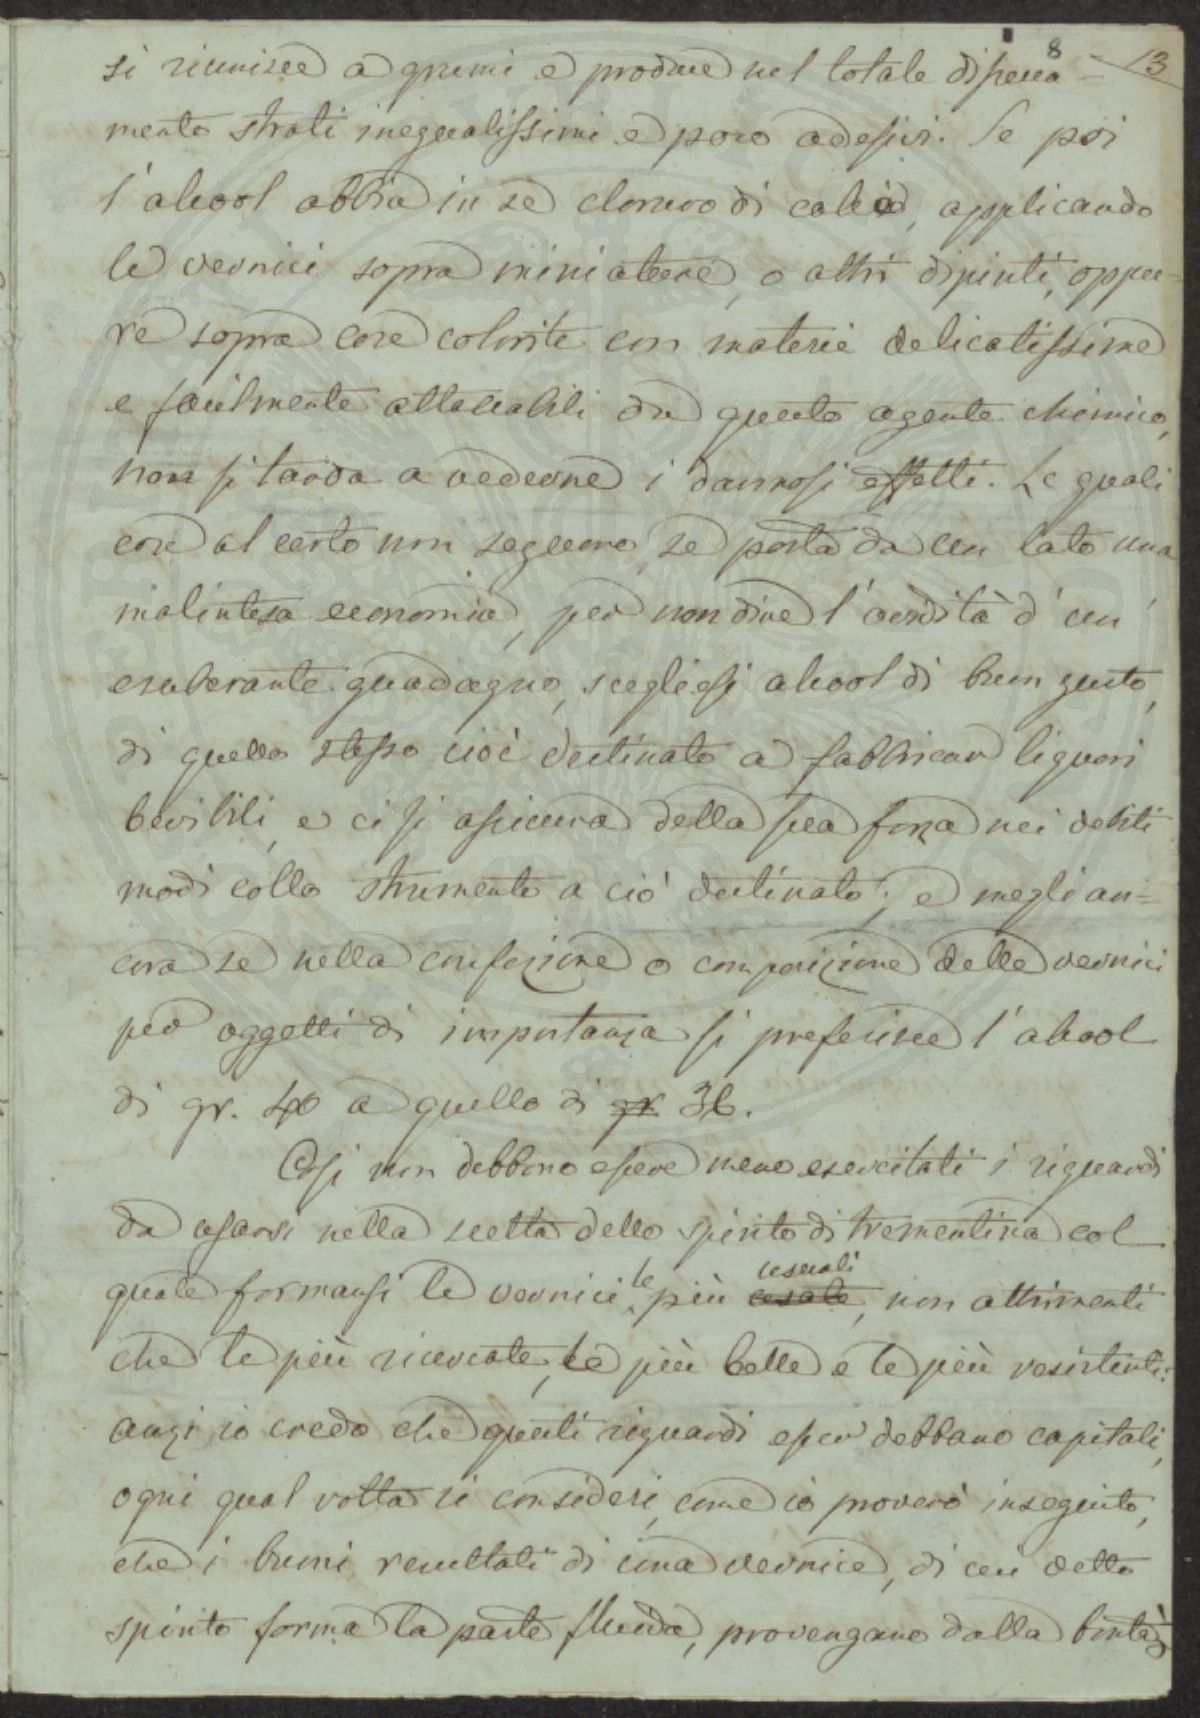 8 13
si riunisce a grumi e produce nel totale disecca=
mento strati inegualissimi e poco adesivi. Se poi
l'alcool abbia in se cloruro di calcio, applicando
le vernici sopra miniature, o altri dipinti, oppu-
re sopra cose colorite con materie delicatissime
e facilmente attaccabili da questo agente chimico,
non si tarda a vederne i dannosi effetti. Le quali
cose al certo non seguono, se posta da un lato una
malintesa economia, per non dire l'avidità d'un
esuberante guadagno, scegliesi alcool di buon gusto,
di quello stesso cioè destinato a fabbricar liquori
bevibili, e ci si assicura della sua forza nei debiti
modi collo strumento a ciò destinato; e megli an=
cora se nella confezione o composizione delle vernici
per oggetti di importanza si preferisce l'alcool
di gr. 40 a quello di gr 36.
Così non debbono essere meno esercitati i riguardi
da usarsi nella scelta dello spirito di trementina col
quale formansi le vernici le più usuali usate, non altrimenti
che le più ricercate, le più belle e le più resistenti:
anzi io credo che questi riguardi esser debbano capitali,
ogni qual volta si consideri, come io proverò inseguito,
che i buoni resultati di una vernice, di cui detto
spirito forma la parte fluida, provengano dalla bontà